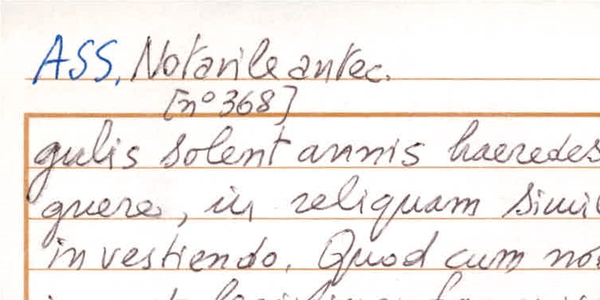 ASS, Notarile antec.
[n° 368]
gulis solent annis haeredes
guere, in reliquam simil
investiendo. Quod cum no